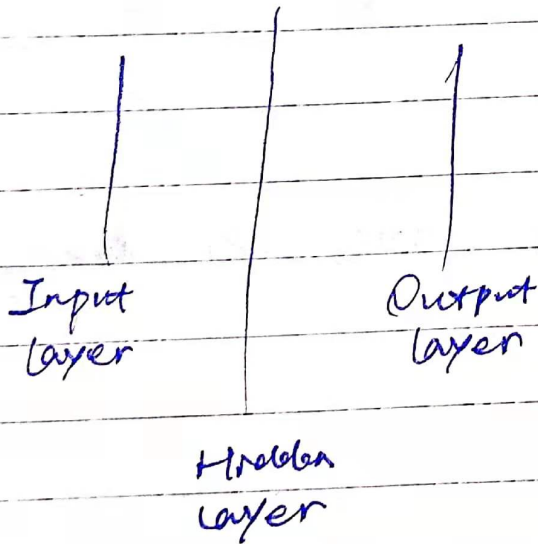 Input
layer
Output
layer
Hidden
layer